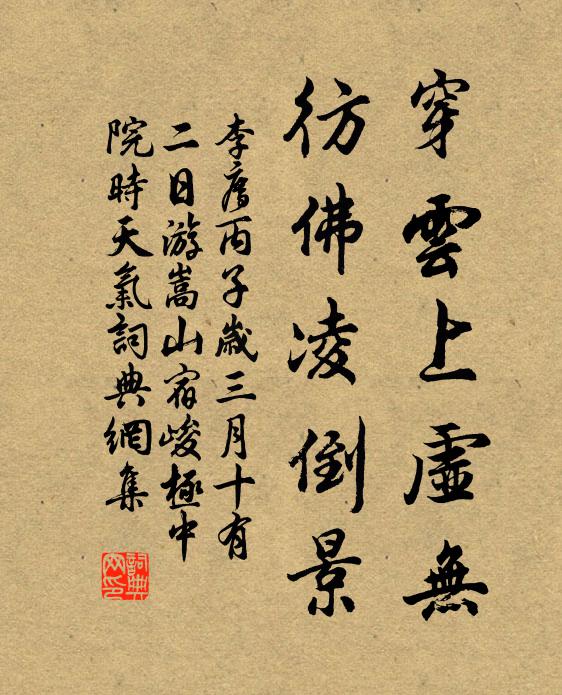 穿雲上虛無
彷佛凌倒景
李廌丙子歲三月十有
二日游嵩山宿峻極中
院時天氣詞典網集
詞典
网印